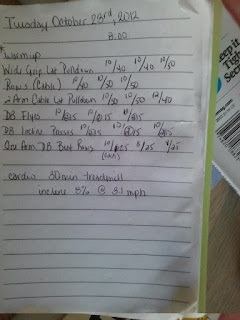 Tuesday October 23rd, 2012
8:00
*Warmup
Wide Grip Lat Pulldown 10/40 10/40 10/50
Rows (Cable) 10/40 10/50 10/50
2 Arm Cable Lat Pulldown 10/30 10/50 12/40
DB Flys 10/@15 10/@15 10/@15
DB Incline Presses 10/@15 10/@15 10/@15
One Arm DB Bent Rows 10/@25 8/25 8/25
(Each)
cardio 30 min treadmill
incline 5% @ 3.1 mph
keep it
Tig
Sec